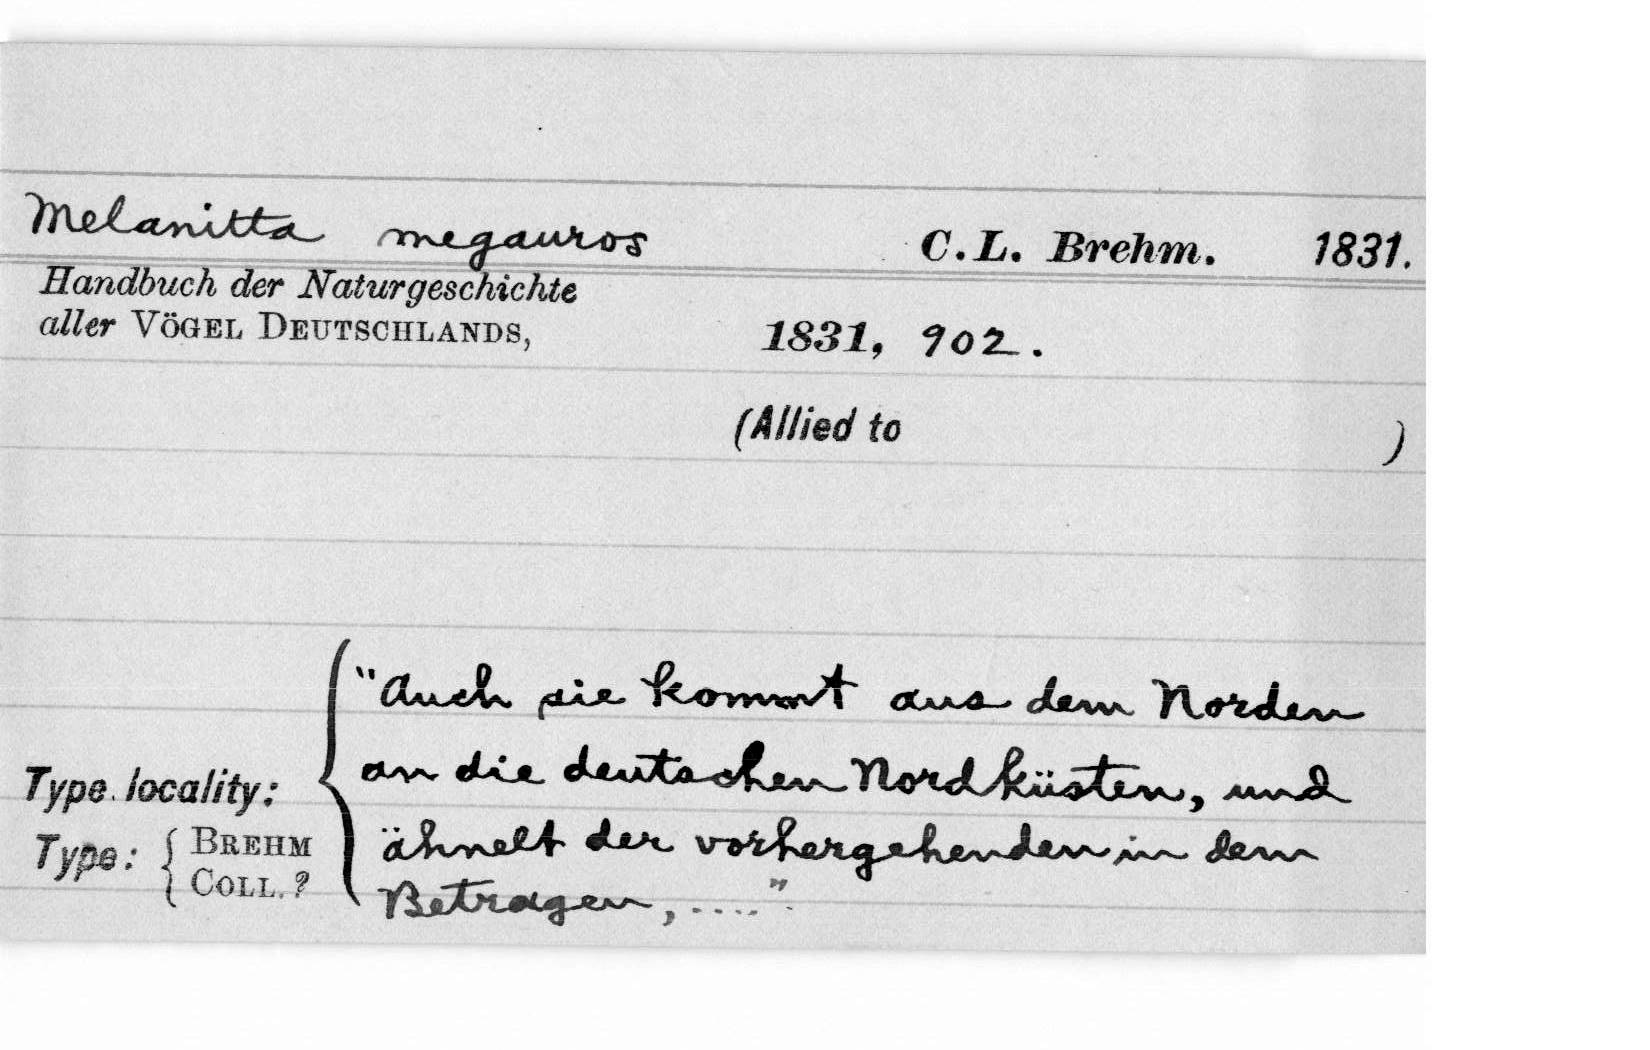 Melanitta megauros C.L. Brehm. 1831.
Handbuch der Naturgeschichte
aller VÖGEL DEUTSCHLANDS, 1831, 902.
(Allied to )
"Auch sie kommt aus dem Norden
an die deutschen Nordküsten, und
Type locality:
ähnelt der vorhergehenden in dem
Type: { BREHM
COLL. ?
Betragen, ....".